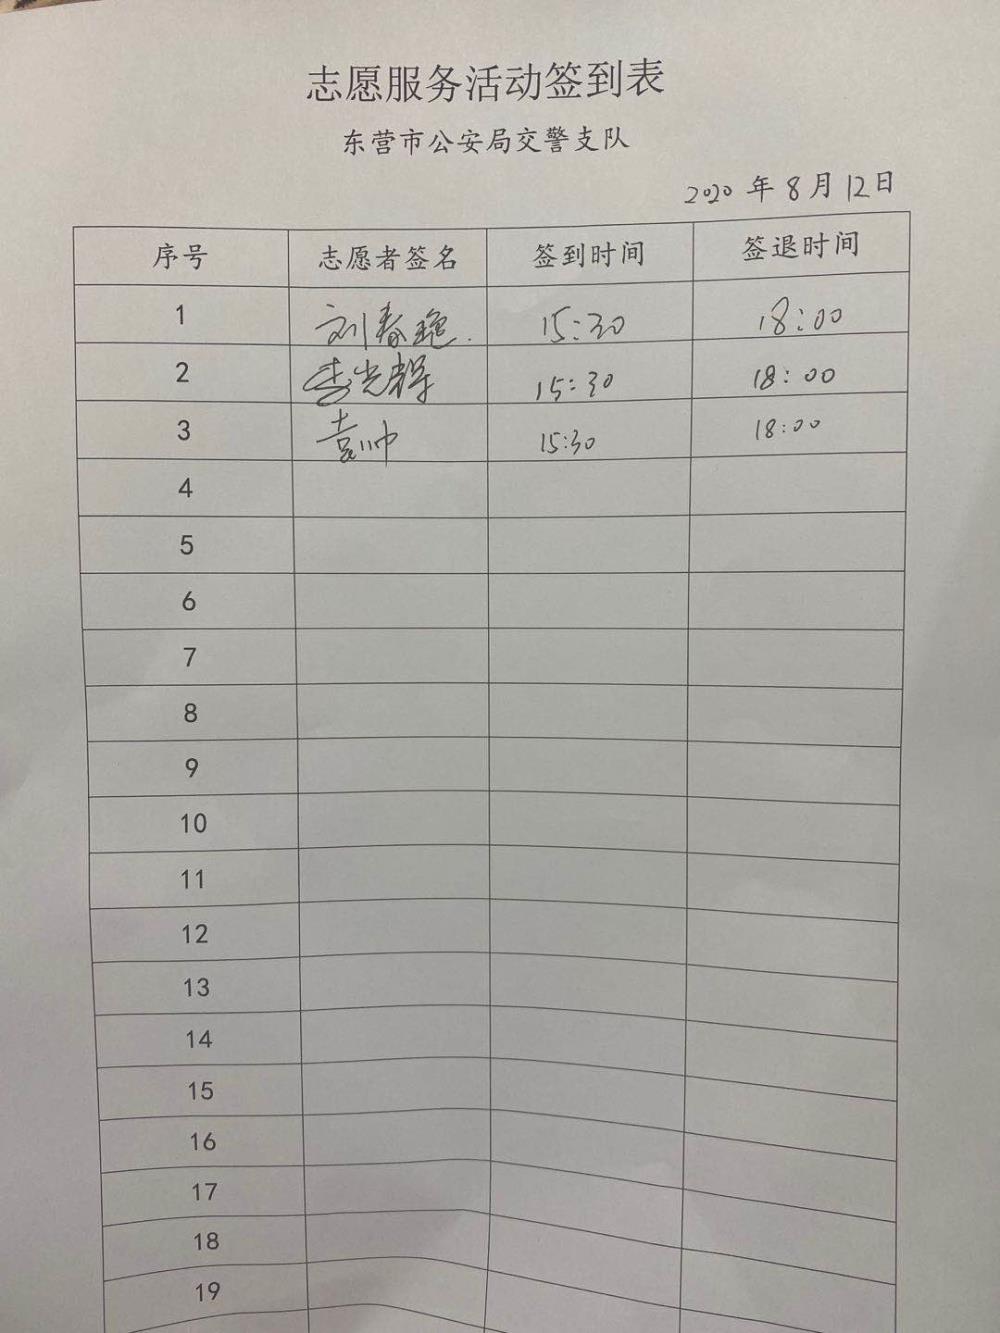 志愿服务活动签到表
东营市公安局交警支队
2020 年 8 月 12 日
序号 志愿者签名 签到时间 签退时间
1 刘春艳. 15:30 18:00
2 李光 15:30 18:00
3 袁帅 15:30 18:00
4
5
6
7
8
9
10
11
12
13
14
15
16
17
18
19